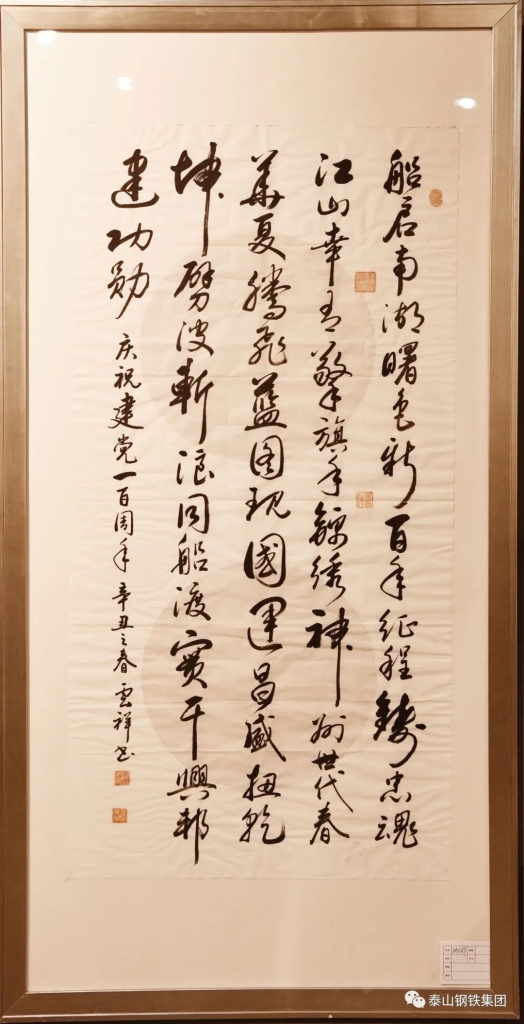 船启南湖曙色新百年征程铸忠魂
江山幸有擎旗手锦绣神州世代春
華夏腾飞蓝图现國運昌盛扭乾
坤劈波斬浪同船渡實干興邦
建功勋
庆祝建党一百周年辛丑之春雲祥书
泰山钢铁集团